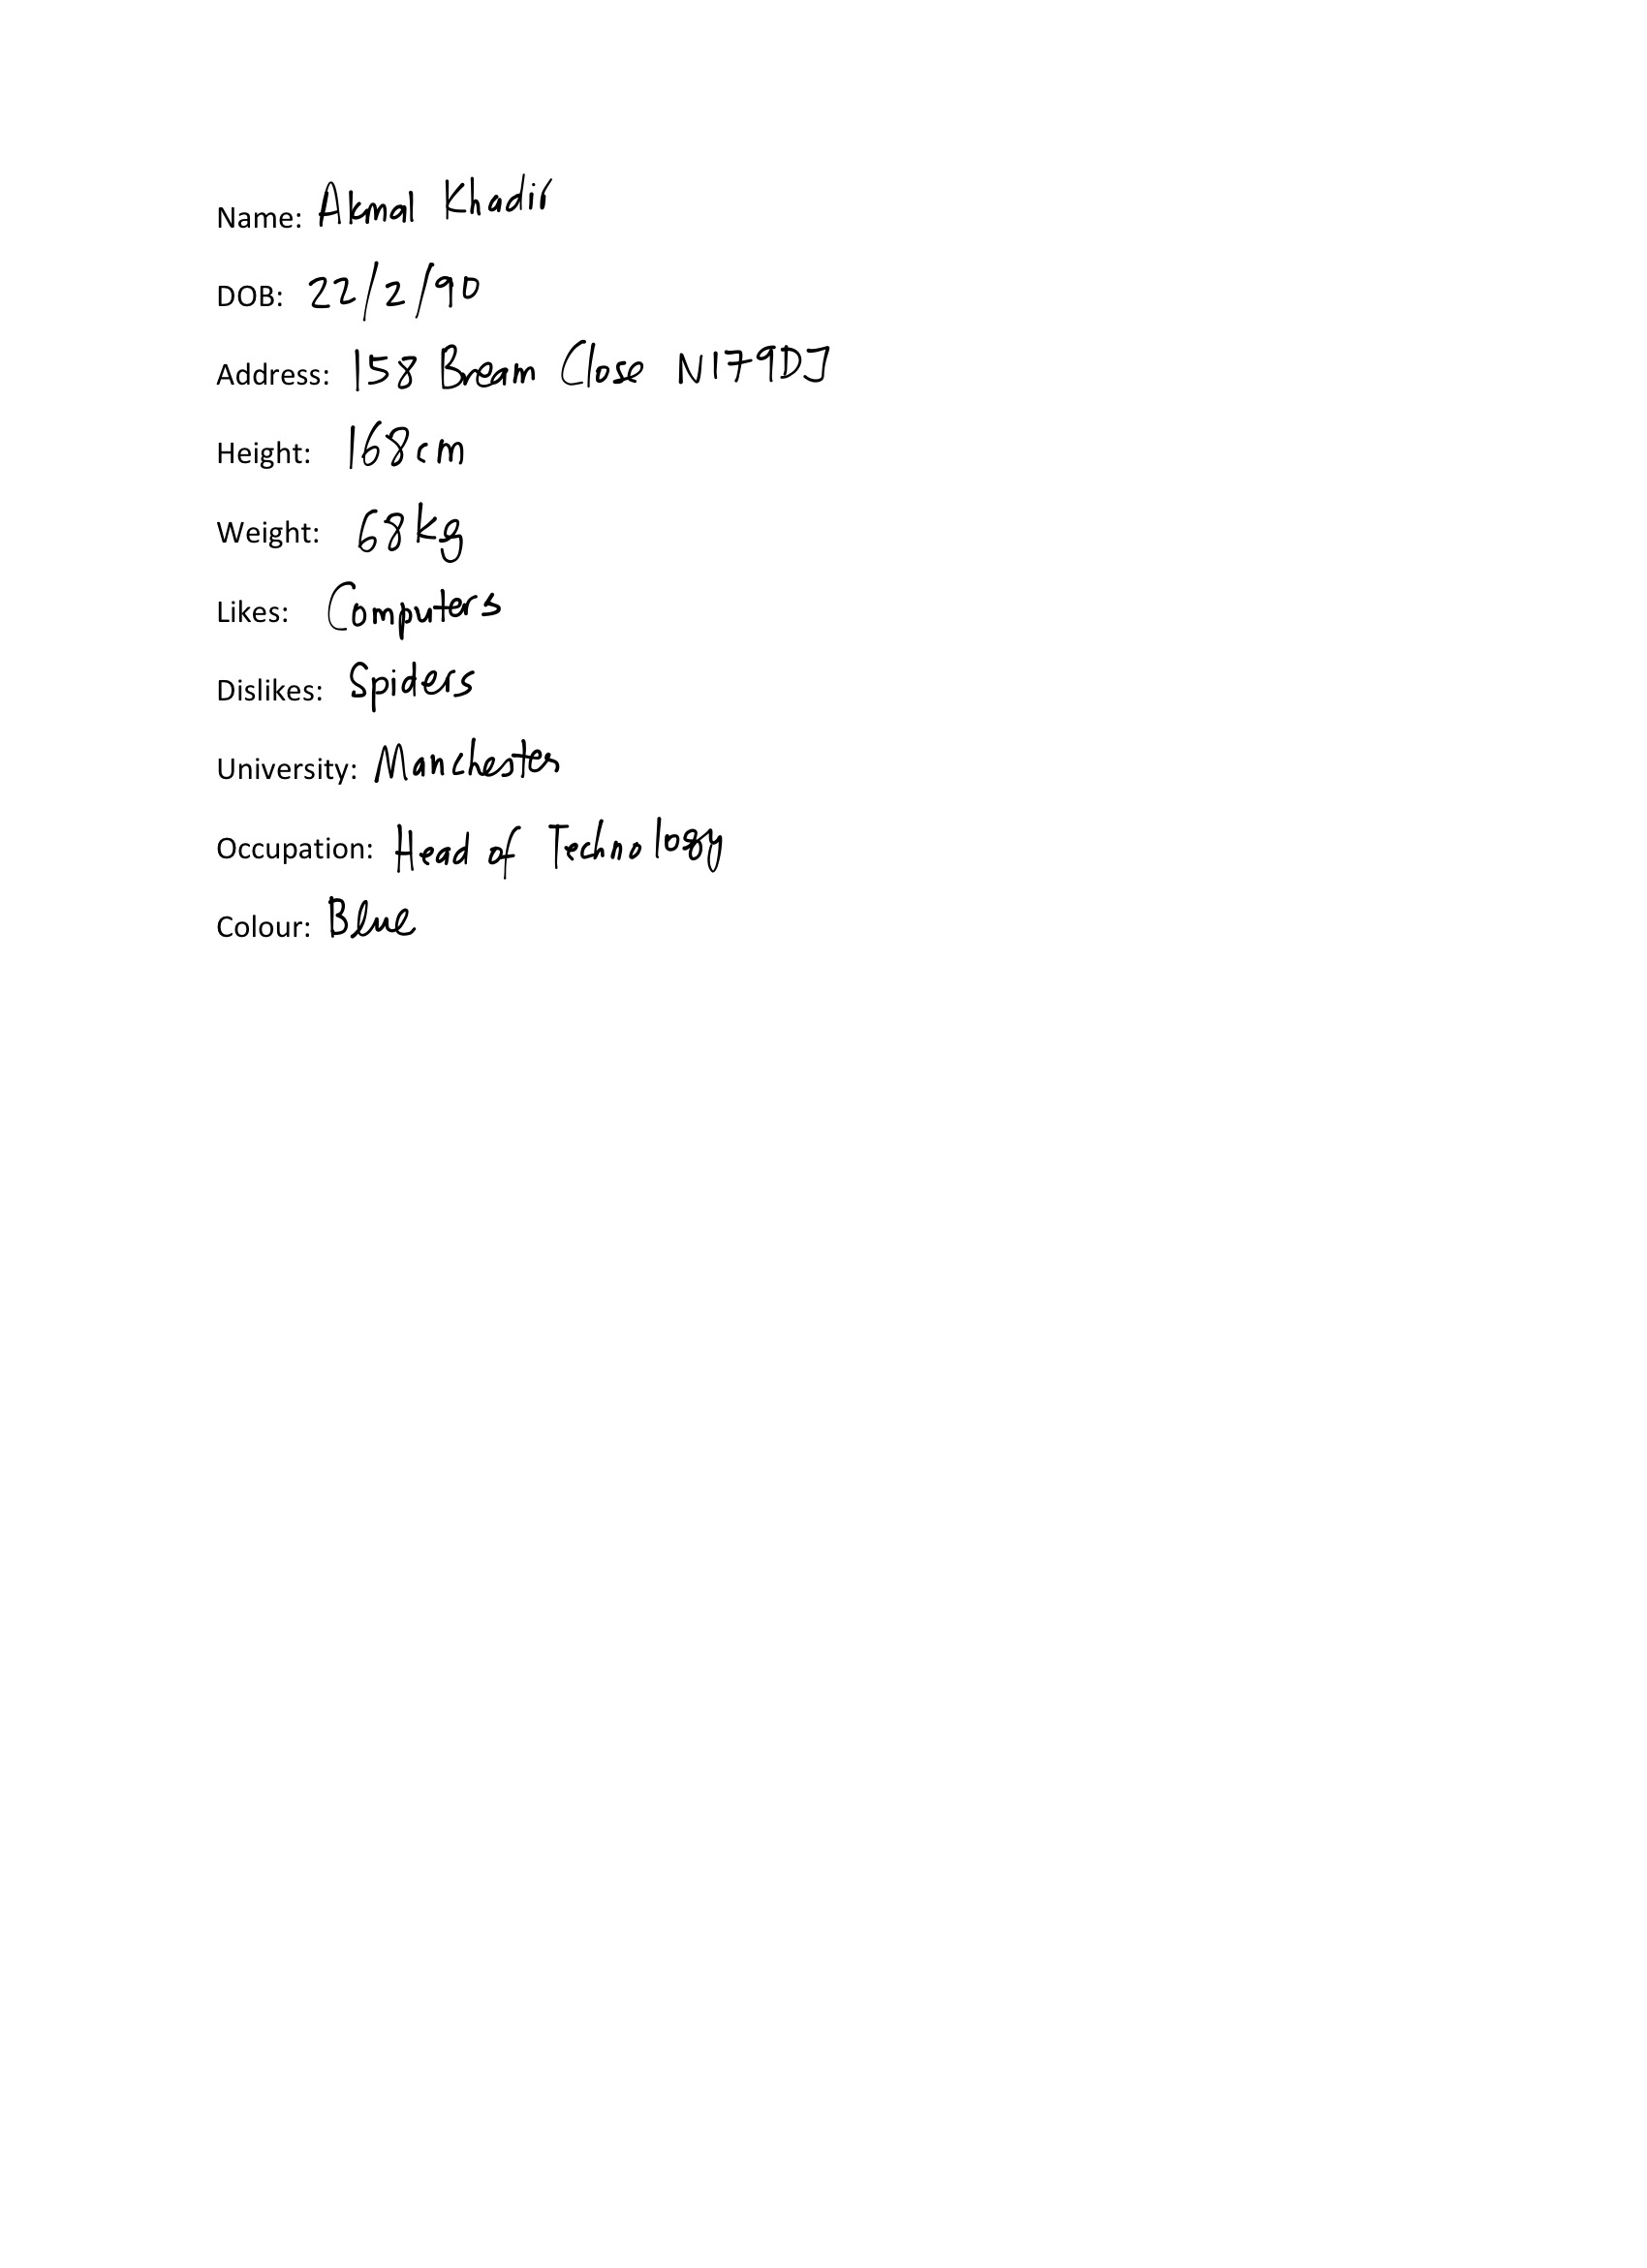 Name: Akmal Khadir
DOB: 22/2/90
Address: 158 Bream Close N179DJ
Height: 168cm
Weight: 68kg
Likes: Computers
Dislikes: Spiders
University: Manchester
Occupation: Head of Technology
Colour: Blue